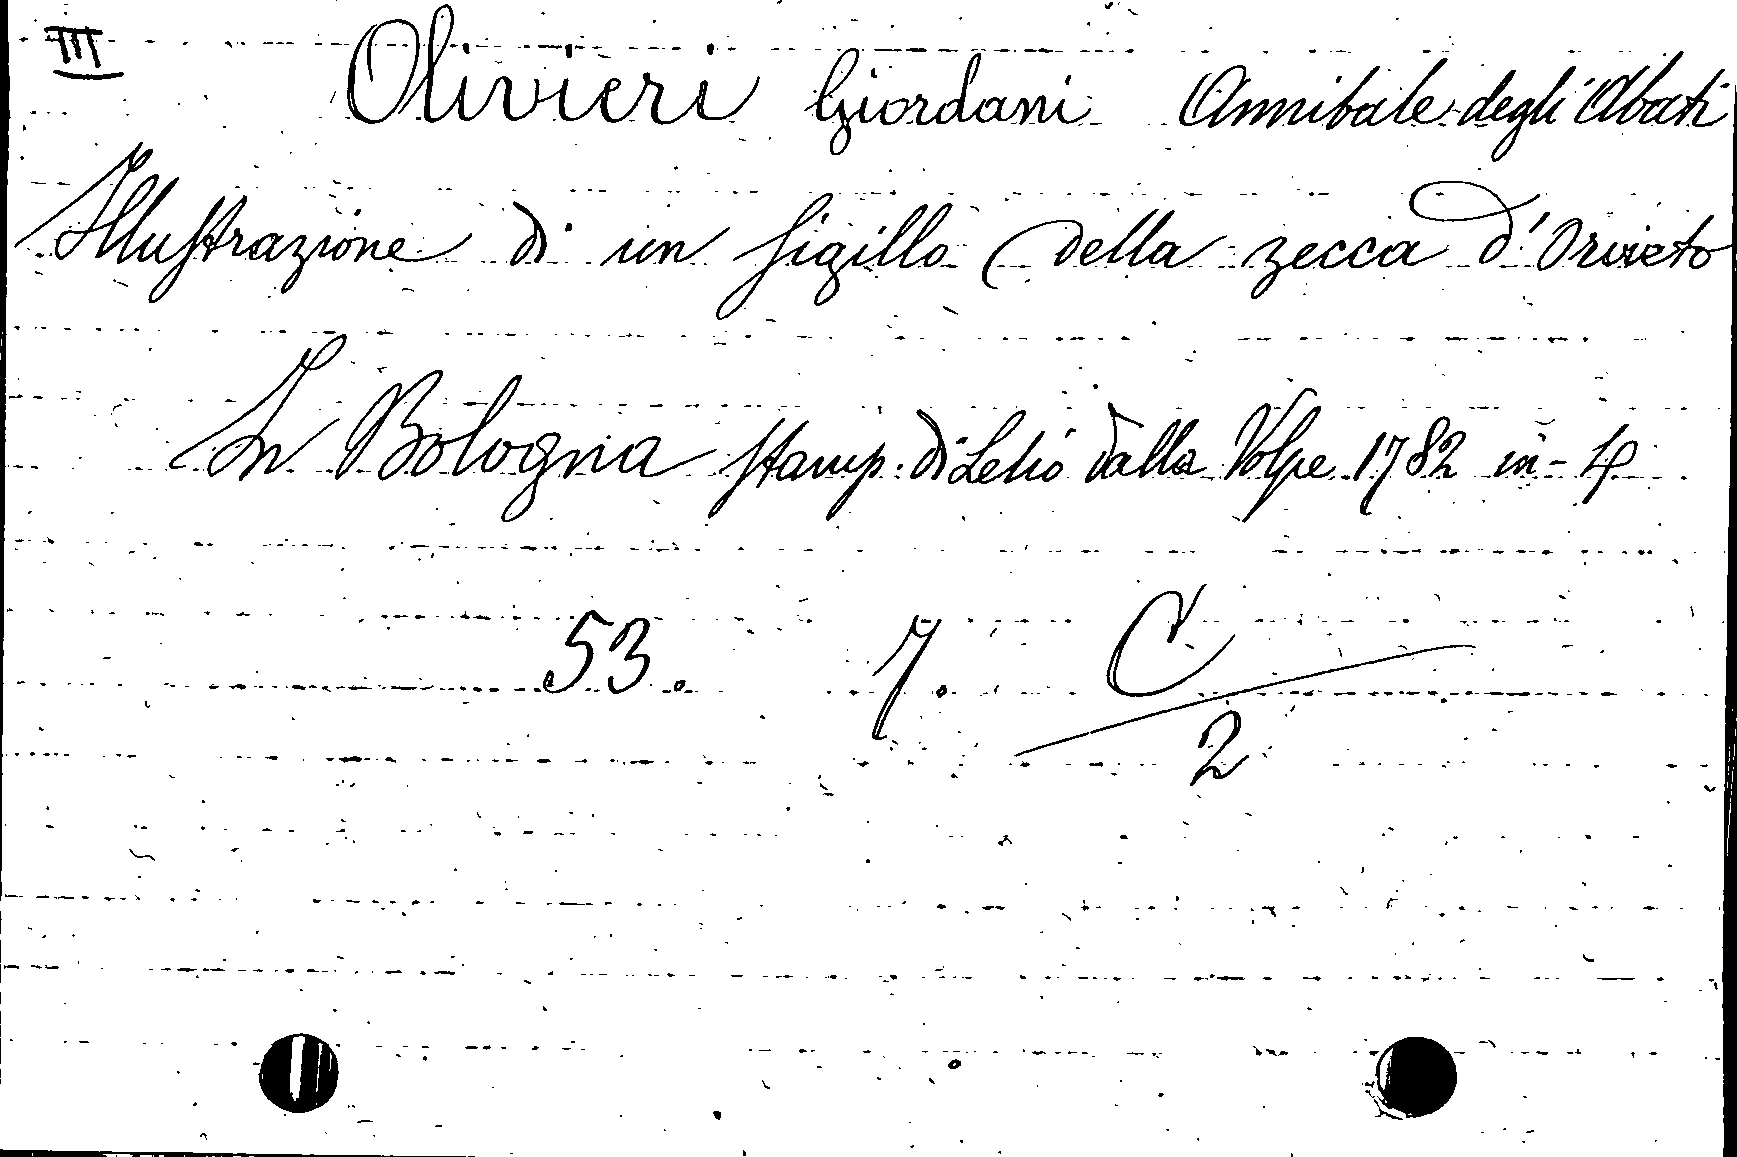 III
Olivieri Giordani Annibale degli Abati
Illustrazione di un sigillo della zecca d'Orvieto
In Bologna stamp. di Lelio dalla Volpe 1782 in-4
53. 7. C/2